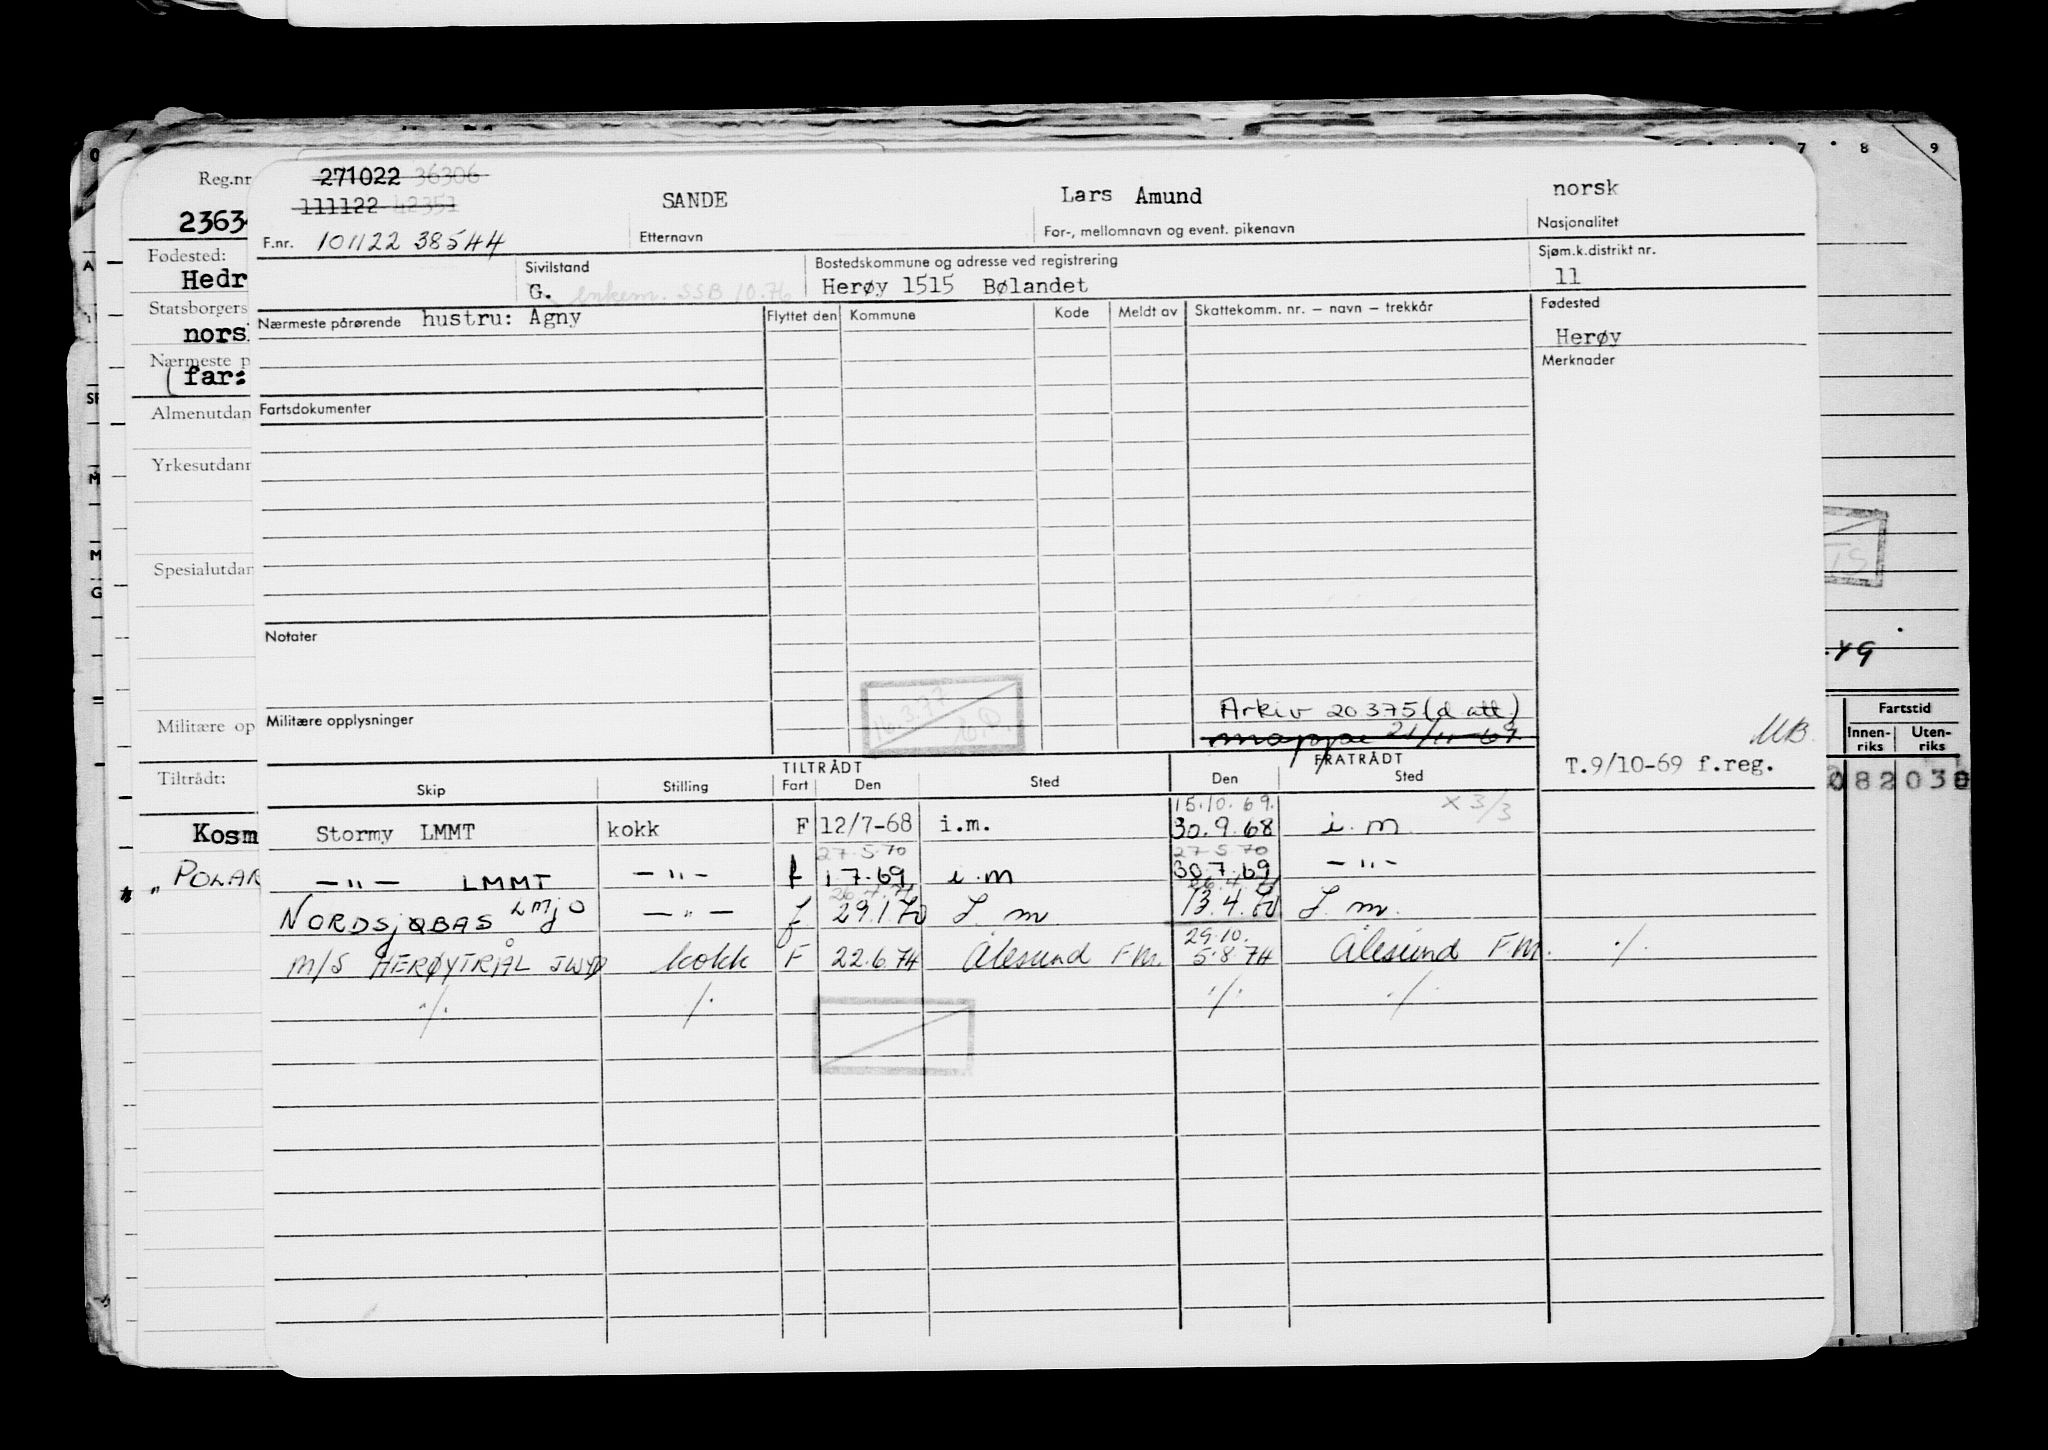 271022 36306
111122 42351
F.nr. 101122 38544
SANDE
Etternavn
Lars Amund
For-, mellomnavn og event. pikenavn
norsk
Nasjonalitet
Sivilstand
G. enkem. SSB 10.76
Bostedskommune og adresse ved registrering
Herøy 1515 Bølandet
Sjøm.k.distrikt nr.
11
Nærmeste pårørende hustru: Agny
Flyttet den Kommune Kode Meldt av Skattekomm. nr. – navn – trekkår
Fødested
Herøy
Merknader
Fartsdokumenter
Notater
Militære opplysninger
Arkiv 20375 (d att)
mappe 21/11-69
MB.
T.9/10-69 f.reg.
TILTRÅDT FRATRÅDT
Skip Stilling Fart Den Sted Den Sted
15.10.69. x 3/3
Stormy LMMT kokk F 12/7-68 i.m. 30.9.68 i.m.
27.5.70 27.5.70
— " — LMMT — " — f 1.7.69 i.m 30.7.69 — " —
NORDSJØBAS LMJO — " — f 29.1.70 I. m 13.4.70 I. m.
29.10.
M/S HERØYTRÅL JWYD kokk F 22.6.74 Ålesund F.M. 5.8.74 Ålesund F.M. ·/.
·/. ·/. ·/. ·/.
Reg.nr
2363
Fødested:
Hedr
Statsborgers
nors
Nærmeste p
(far:
Almenutdan
Yrkesutdann
Spesialutdan
Militære op
Tiltrådt:
Kosm
" POLAR
7 8 9
A
M
M
G
.49
Fartstid
Innen-riks Uten-riks
082030